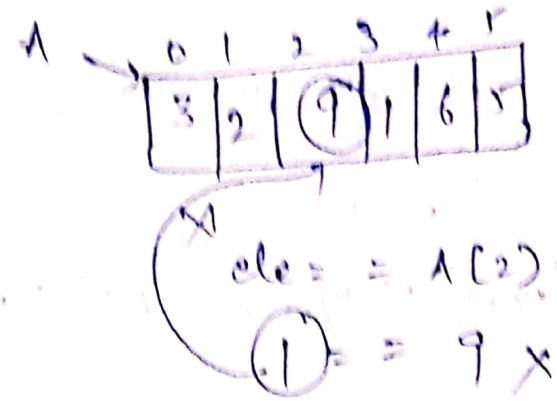 A
0 1 2 3 4 5
3 2 9 1 6 5
ele = = A[2]
1 = = 9 X